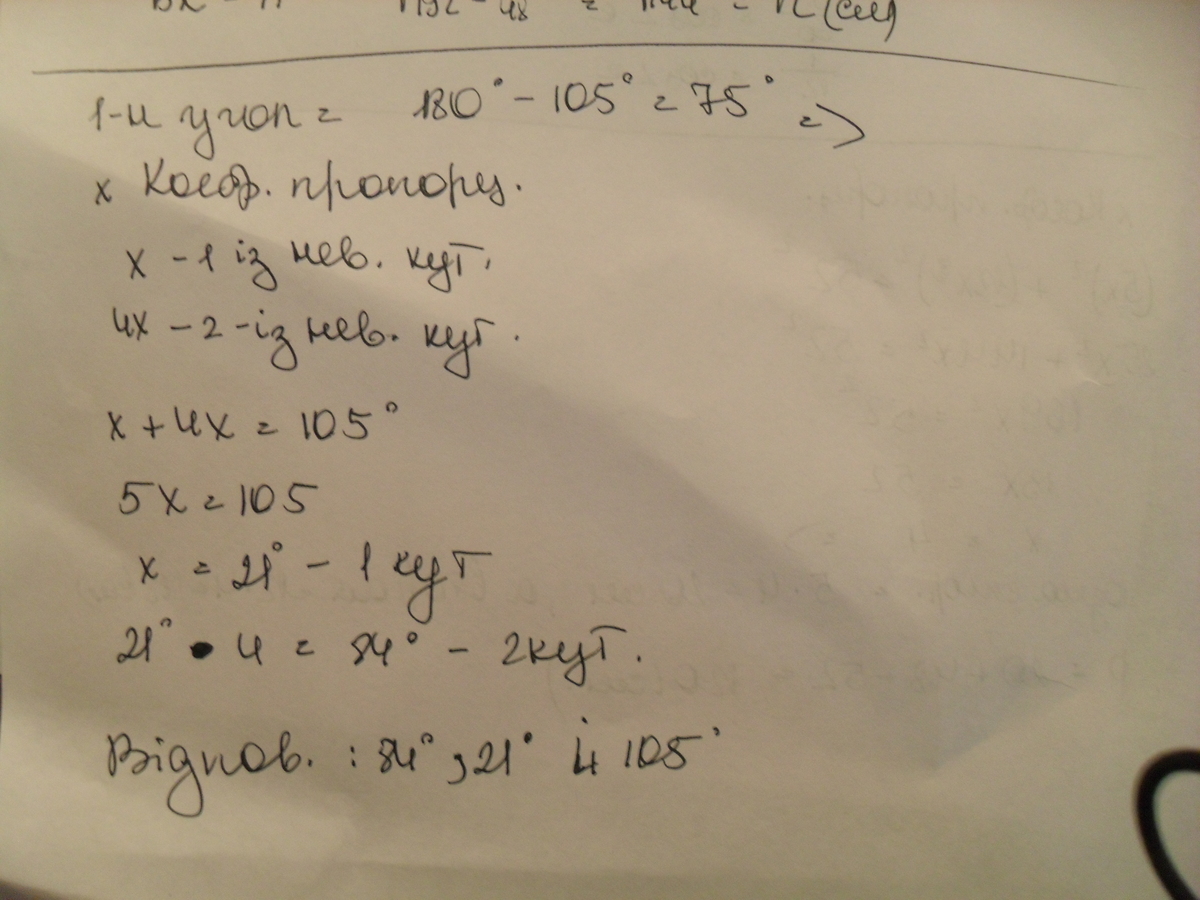 1-й угол = 180° - 105° = 75° =>
x Коеф. пропорц.
x - 1 із нев. кут.
4x - 2-із нев. кут.
x + 4x = 105°
5x = 105
x = 21° - 1 кут
21° • 4 = 84° - 2 кут.
Відпов. : 84°, 21° і 105°